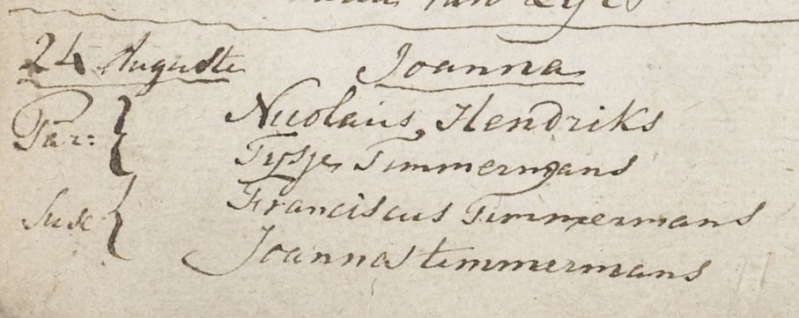 van
24 Auguste Joanna
Par: Nicolaus Hendriks
Tysje Timmermans
Susc Franciscus Timmermans
Joanna timmermans